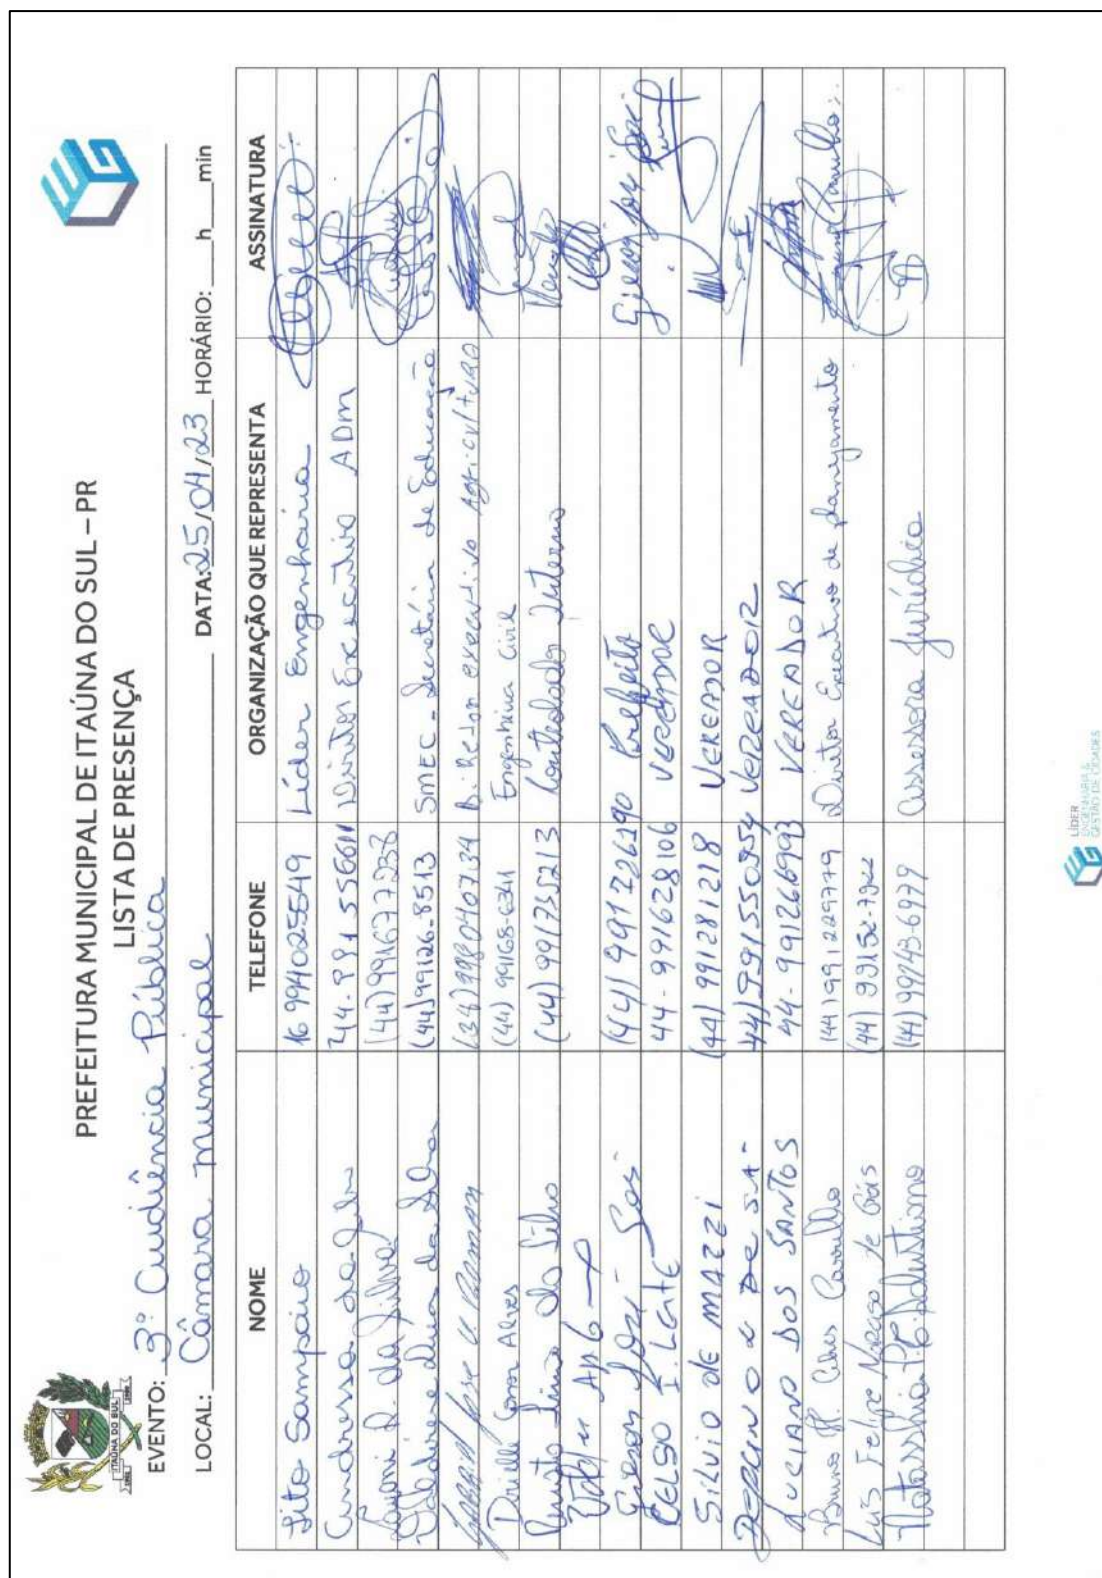 PREFEITURA MUNICIPAL DE ITAÚNA DO SUL – PR
LISTA DE PRESENÇA
ITAÚNA DO SUL
EVENTO: 3º Audiência Pública
LOCAL: Câmara municipal DATA: 25/04/23 HORÁRIO: ___h___min
NOME TELEFONE ORGANIZAÇÃO QUE REPRESENTA ASSINATURA
Sampaio 16 994025549 Líder Engenharia
Andressa 44-991556611 Diretor Executivo ADM
da Silva (44) 991677238
da Silva (44) 99126-8513 SMEC - Secretária de Educação
José (34) 998040734 Diretor executivo Agricultura
Alves (44) 99168-6341 Engenheira Civil
da Silva (44) 991755213 Controlador Interno
Gilson José Gois (44) 991226290 Prefeito Gilson José Gois
CELSO I. LEITE 44-991628106 VEREADOR
SILVIO DE MAZZI (44) 991281218 VEREADOR
DE SÁ 44) 991550954 VEREADOR
LUCIANO DOS SANTOS 44-991266993 VEREADOR
Bruno H. Alves Carrilho (44) 991229779 Diretor Executivo de planejamento
Luis Felipe de Góis (44) 99152-7922
(44) 99743-6979 Assessora Jurídica
LÍDER
ENGENHARIA &
GESTÃO DE CIDADES